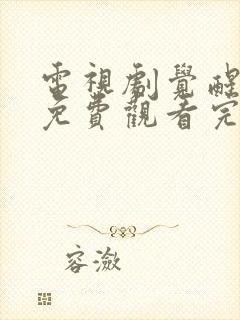 電視劇覺醒
免費觀看完
容瀲